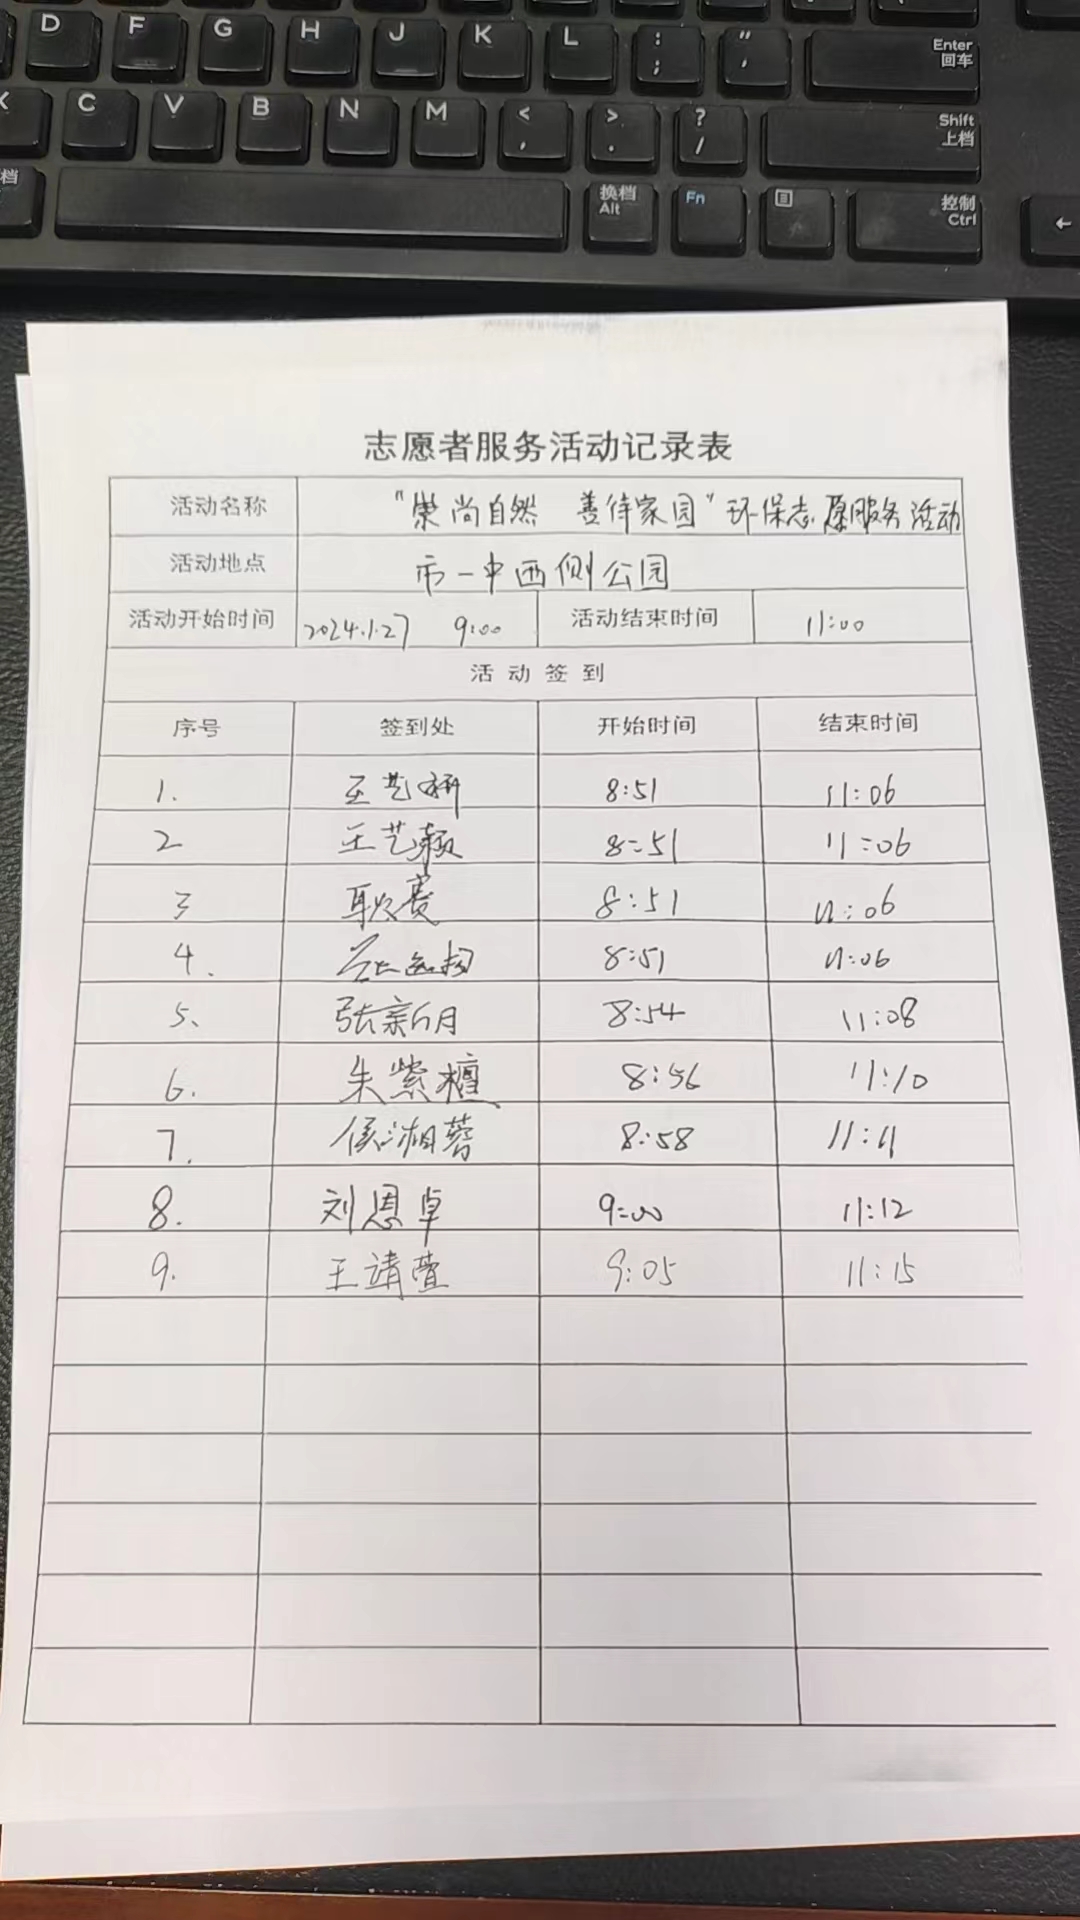 D F G H J K L : ; " ' Enter 回车
X C V B N M < , > . ? / Shift 上档
档 换档 Alt Fn 控制 Ctrl ←
志愿者服务活动记录表
活动名称 "崇尚自然 善待家园"环保志愿服务活动
活动地点 市一中西侧公园
活动开始时间 2024.1.27 9:00 活动结束时间 11:00
活动签到
序号 签到处 开始时间 结束时间
1. 王艺妍 8:51 11:06
2 王艺颖 8:51 11:06
3 耿赛 8:51 11:06
4. 8:51 11:06
5、 张新月 8:54 11:08
6. 朱紫檀 8:56 11:10
7. 侯湘蓉 8:58 11:11
8. 刘恩卓 9:00 11:12
9. 王靖萱 9:05 11:15